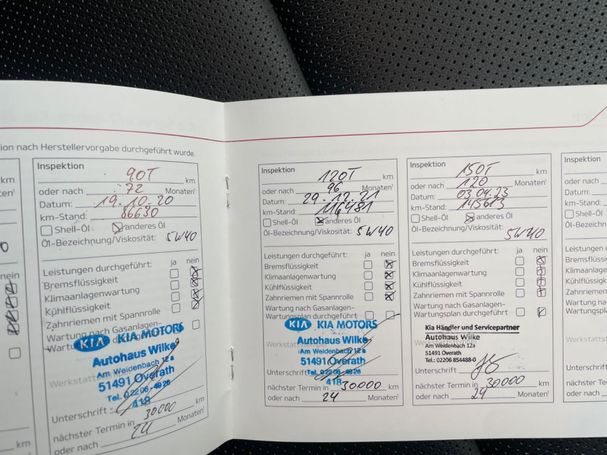 ion nach Herstellervorgabe durchgeführt wurde.
km
nein
km
Inspektion 90T km
oder nach 72 Monaten¹
Datum: 19.10.20
km-Stand: 86630
Shell-Öl anderes Öl
Öl-Bezeichnung/Viskosität: 5W40
Leistungen durchgeführt: ja nein
Bremsflüssigkeit
Klimaanlagenwartung
Kühlflüssigkeit
Zahnriemen mit Spannrolle
Wartung nach Gasanlagen-
KIA KIA MOTORS
Autohaus Wilke
Am Weidenbach 12a
51491 Overath
418
Unterschrift:
nächster Termin in 30000 km
oder nach 24 Monaten¹
Inspektion 120T km
oder nach 96 Monaten¹
Datum: 29.12.21
km-Stand: 114481
Shell-Öl anderes Öl
Öl-Bezeichnung/Viskosität: 5W40
Leistungen durchgeführt: ja nein
Bremsflüssigkeit
Klimaanlagenwartung
Kühlflüssigkeit
Zahnriemen mit Spannrolle
Wartung nach Gasanlagen-
Wartungsplan durchgeführt
KIA KIA MOTORS
Autohaus Wilke
Am Weidenbach 12a
51491 Overath
418
Unterschrift:
nächster Termin in 30000 km
oder nach 24 Monaten¹
Inspektion 150T km
oder nach 120 Monaten¹
Datum: 03.04.23
km-Stand: 145613
Shell-Öl anderes Öl
Öl-Bezeichnung/Viskosität:
5W40
Leistungen durchgeführt: ja nein
Bremsflüssigkeit
Klimaanlagenwartung
Kühlflüssigkeit
Zahnriemen mit Spannrolle
Wartung nach Gasanlagen-
Wartungsplan durchgeführt
Kia Händler und Servicepartner
Autohaus Wilke
Am Weidenbach 12a
51491 Overath
Tel.: 02206 854488-0
Unterschrift:
nächster Termin in 30000 km
oder nach 24 Monaten¹